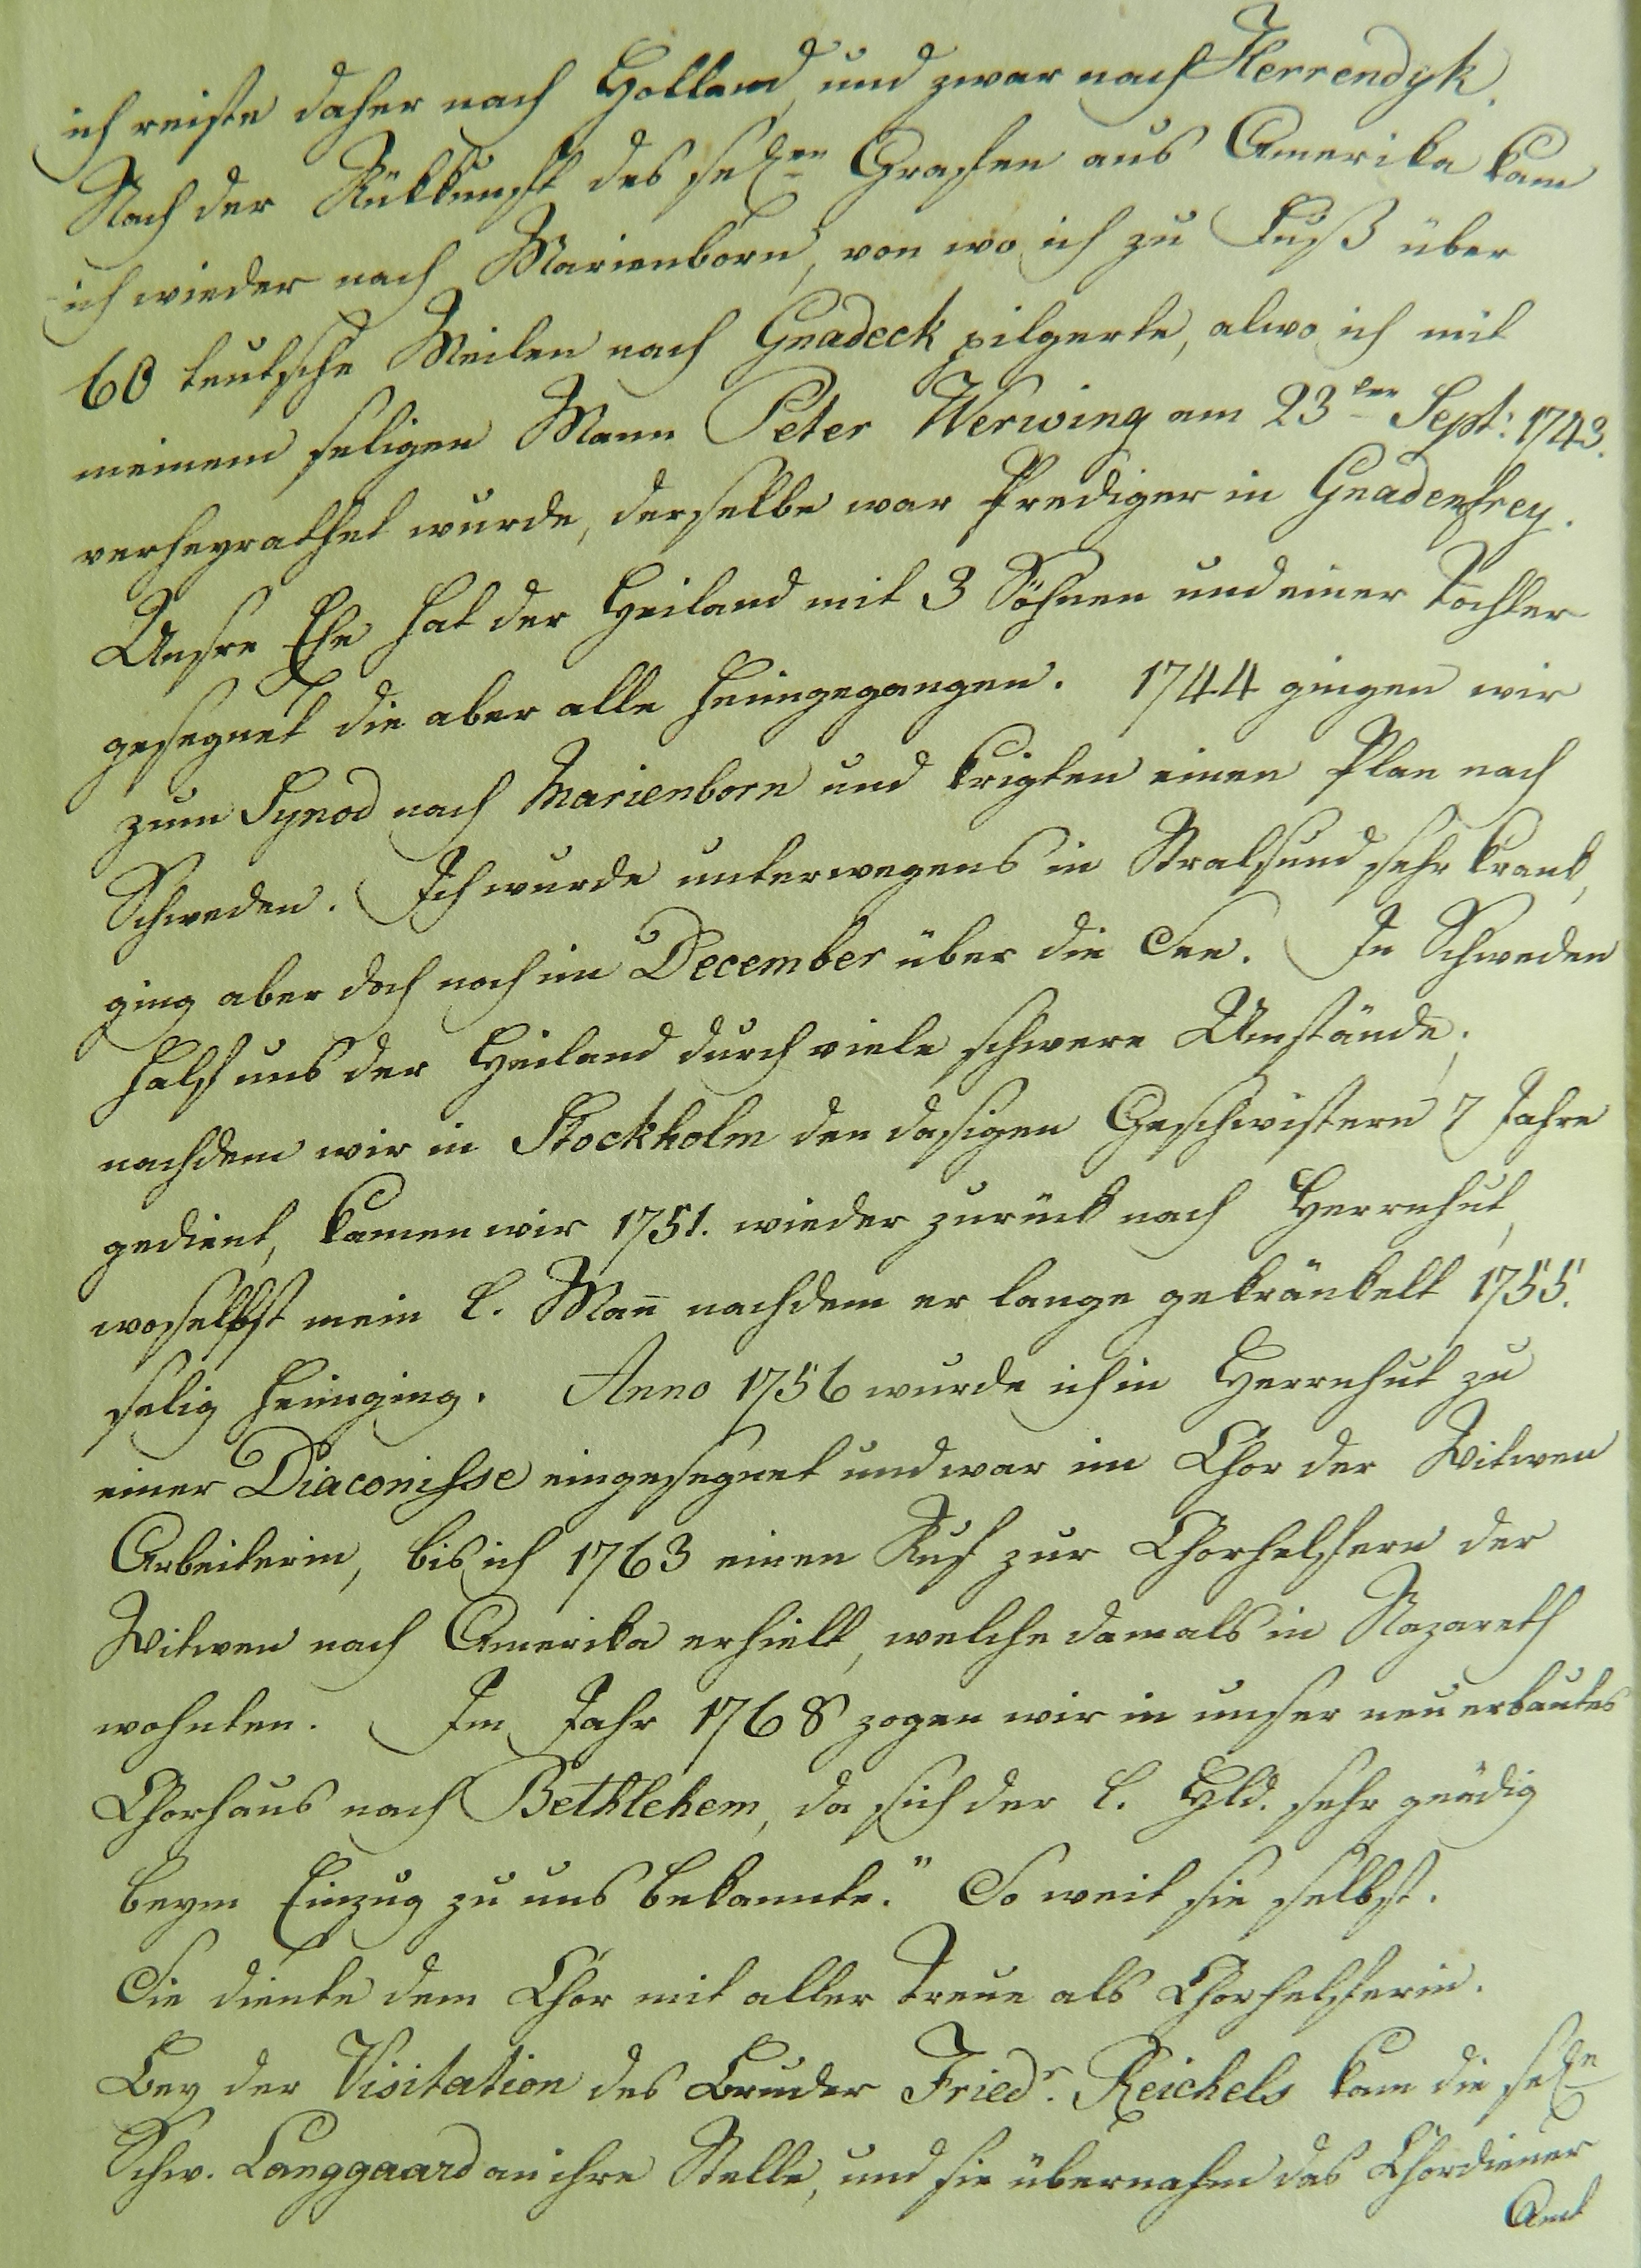 ich reiste daher nach Holland, und zwar nach Herrendyk.
Nach der Rükkunft des sel͞en Grafen aus Amerika kam
ich wieder nach Marienborn, von wo ich zu Fuß über
60 teutsche Meilen nach Gnadeck pilgerte, alwo ich mit
meinem seligen Mann Peter Werwing am 23ten Sept: 1743.
verheyrathet wurde, derselbe war Prediger in Gnadenfrey.
Unsre Ehe hat der Heiland mit 3 Söhnen und einer Tochter
gesegnet die aber alle heimgegangen. 1744 gingen wir
zum Synod nach Marienborn und krigten einen Plan nach
Schweden. Ich wurde unterwegens in Stralsund sehr krank,
ging aber doch noch im December über die See. In Schweden
half uns der Heiland durch viele schwere Umstände;
nachdem wir in Stockholm den dasigen Geschwistern 7 Jahre
gedient, kamen wir 1751. wieder zurück nach Herrnhut,
woselbst mein l. Man̄ nachdem er lange gekränkelt 1755.
selig heimging. Anno 1756 wurde ich in Herrnhut zu
einer Diaconisse eingesegnet und war im Chor der Witwen
Arbeiterin, bis ich 1763 einen Ruf zur Chorhelfern der
Witwen nach Amerika erhielt, welche damals in Nazareth
wohnten. Im Jahr 1768 zogen wir in unser neu erbautes
Chorhaus nach Bethlehem, da sich der l. Hld. sehr gnädig
beym Einzug zu uns bekannte." So weit sie selbst.
Sie diente dem Chor mit aller Treue als Chorhelferin.
Bey der Visitation des Bruder Friedr. Reichels kam die sel͞e
Schw. Langgaard an ihre Stelle, und sie übernahm das Chordiener
Amt